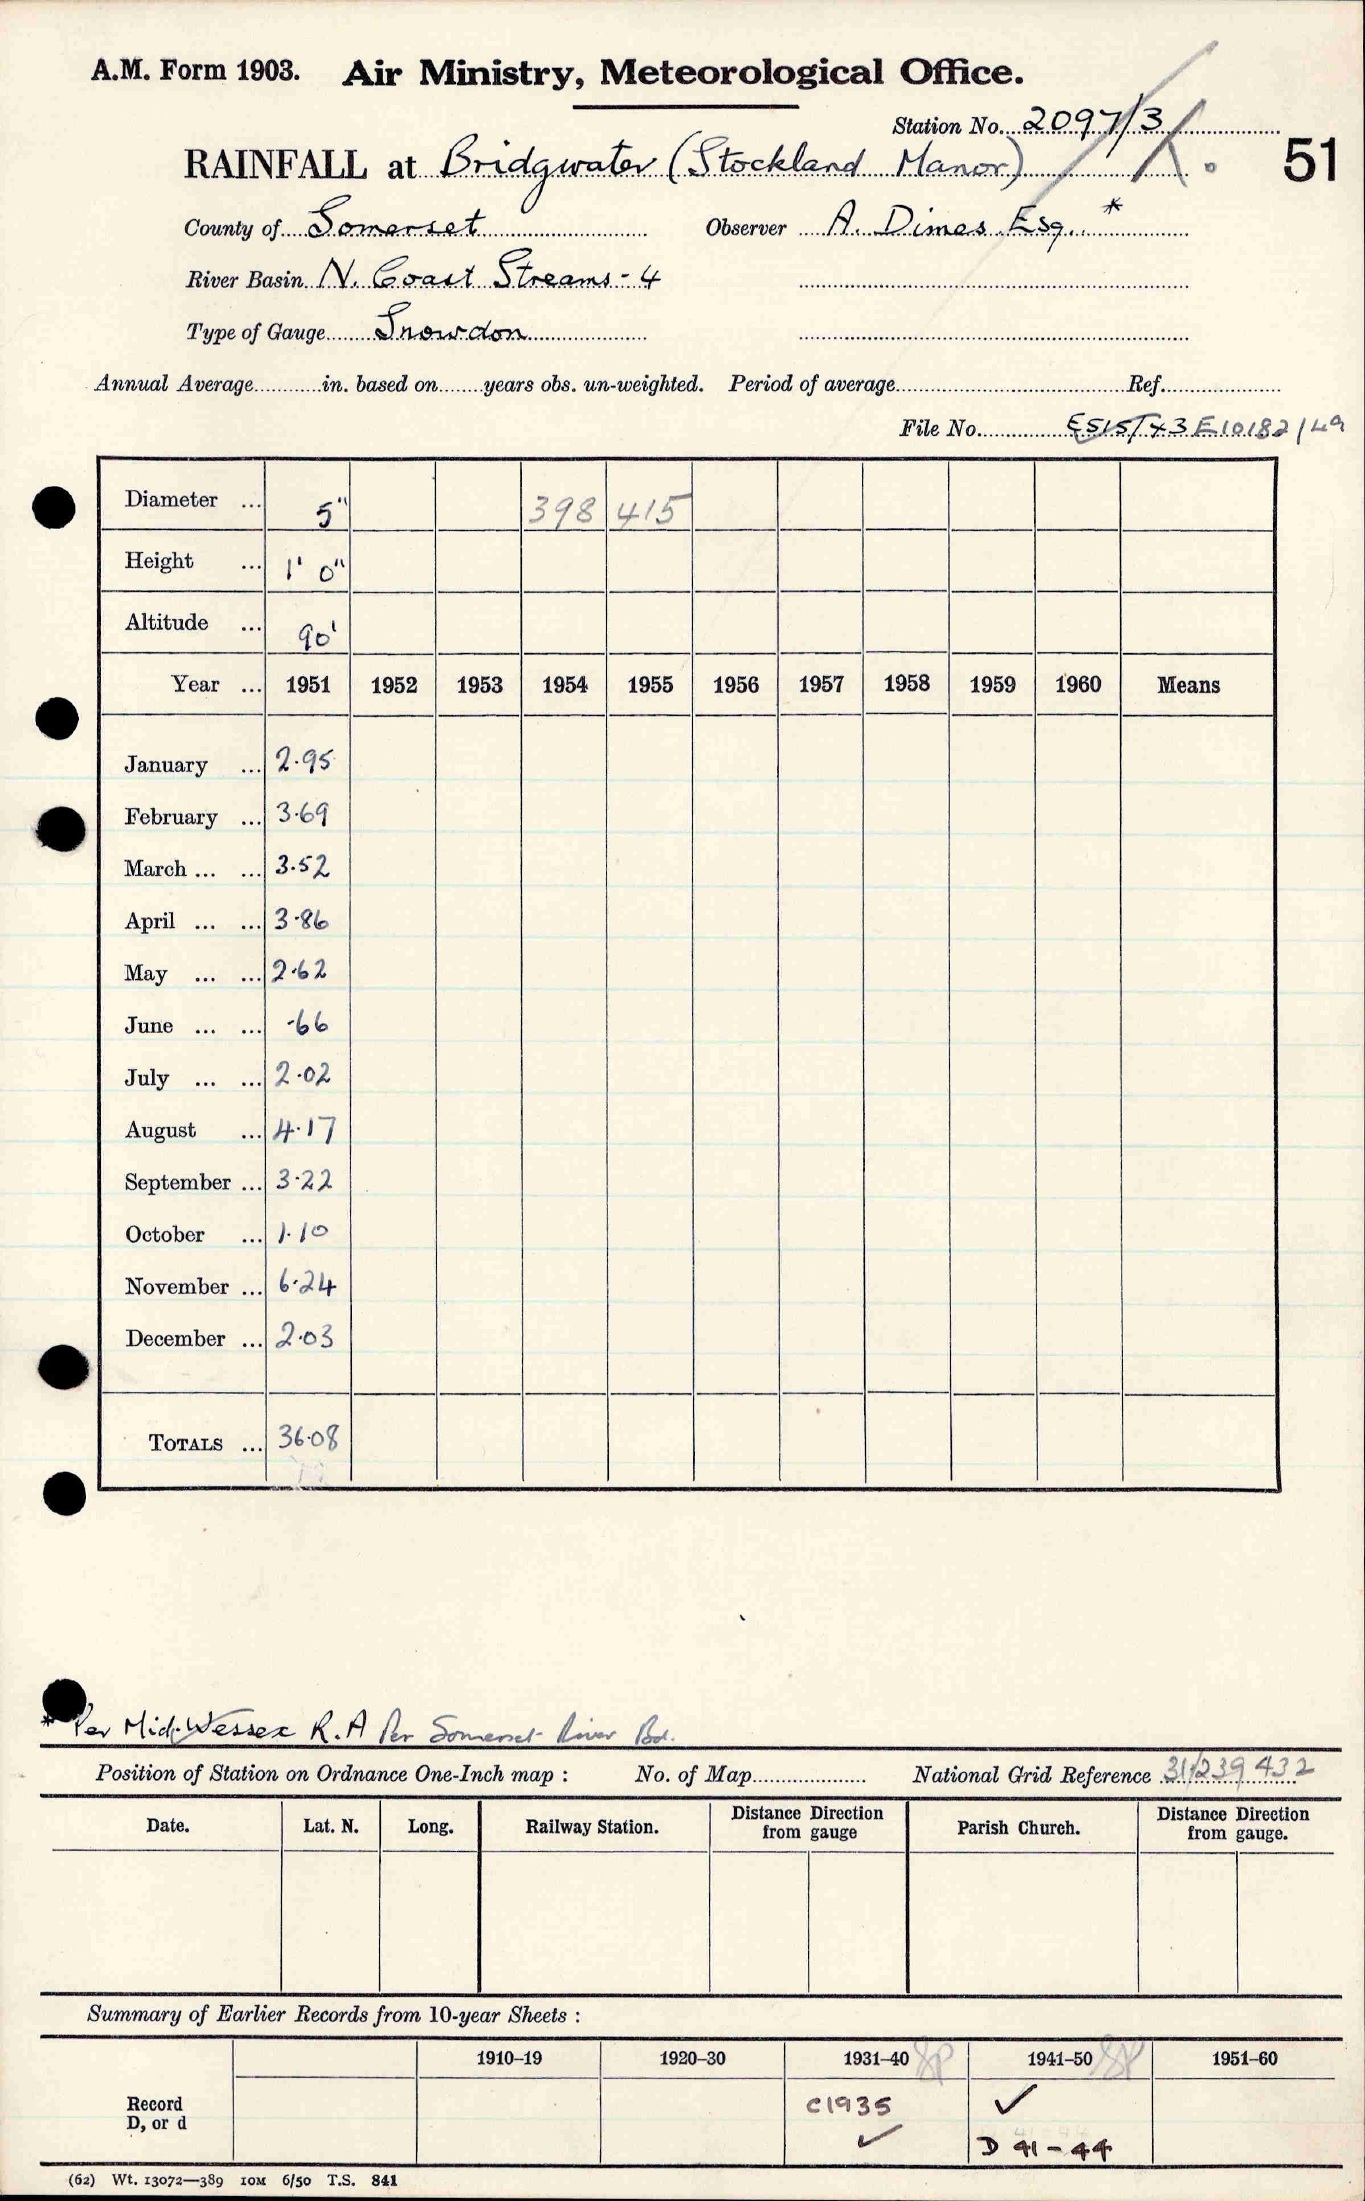 A.M. Form 1903. Air Ministry, Meteorological Office.
Station No. 2097/3
51
RAINFALL at Bridgwater (Stockland Manor)
County of Somerset Observer A. Dimes Esq. *
River Basin N. Coast Streams - 4
Type of Gauge Snowdon
Annual Average in. based on years obs. un-weighted. Period of average Ref.
File No. E10182/49
Diameter ... 5" 398 415
Height ... 1' 0"
Altitude ... 90'
Year ... 1951 1952 1953 1954 1955 1956 1957 1958 1959 1960 Means
January ... 2.95
February ... 3.69
March ... ... 3.52
April ... ... 3.86
May ... ... 2.62
June ... ... .66
July ... ... 2.02
August ... 4.17
September ... 3.22
October ... 1.10
November ... 6.24
December ... 2.03
TOTALS ... 36.08
* Per Mid-Wessex R.A Per Somerset River Bd.
Position of Station on Ordnance One-Inch map : No. of Map National Grid Reference 31/239 432
Date. Lat. N. Long. Railway Station. Distance Direction from gauge Parish Church. Distance Direction from gauge.
Summary of Earlier Records from 10-year Sheets :
1910–19 1920–30 1931–40 1941–50 1951–60
Record C1935 ✓
D, or d ✓ D 41-44
(62) Wt. 13072—389 10M 6/50 T.S. 841